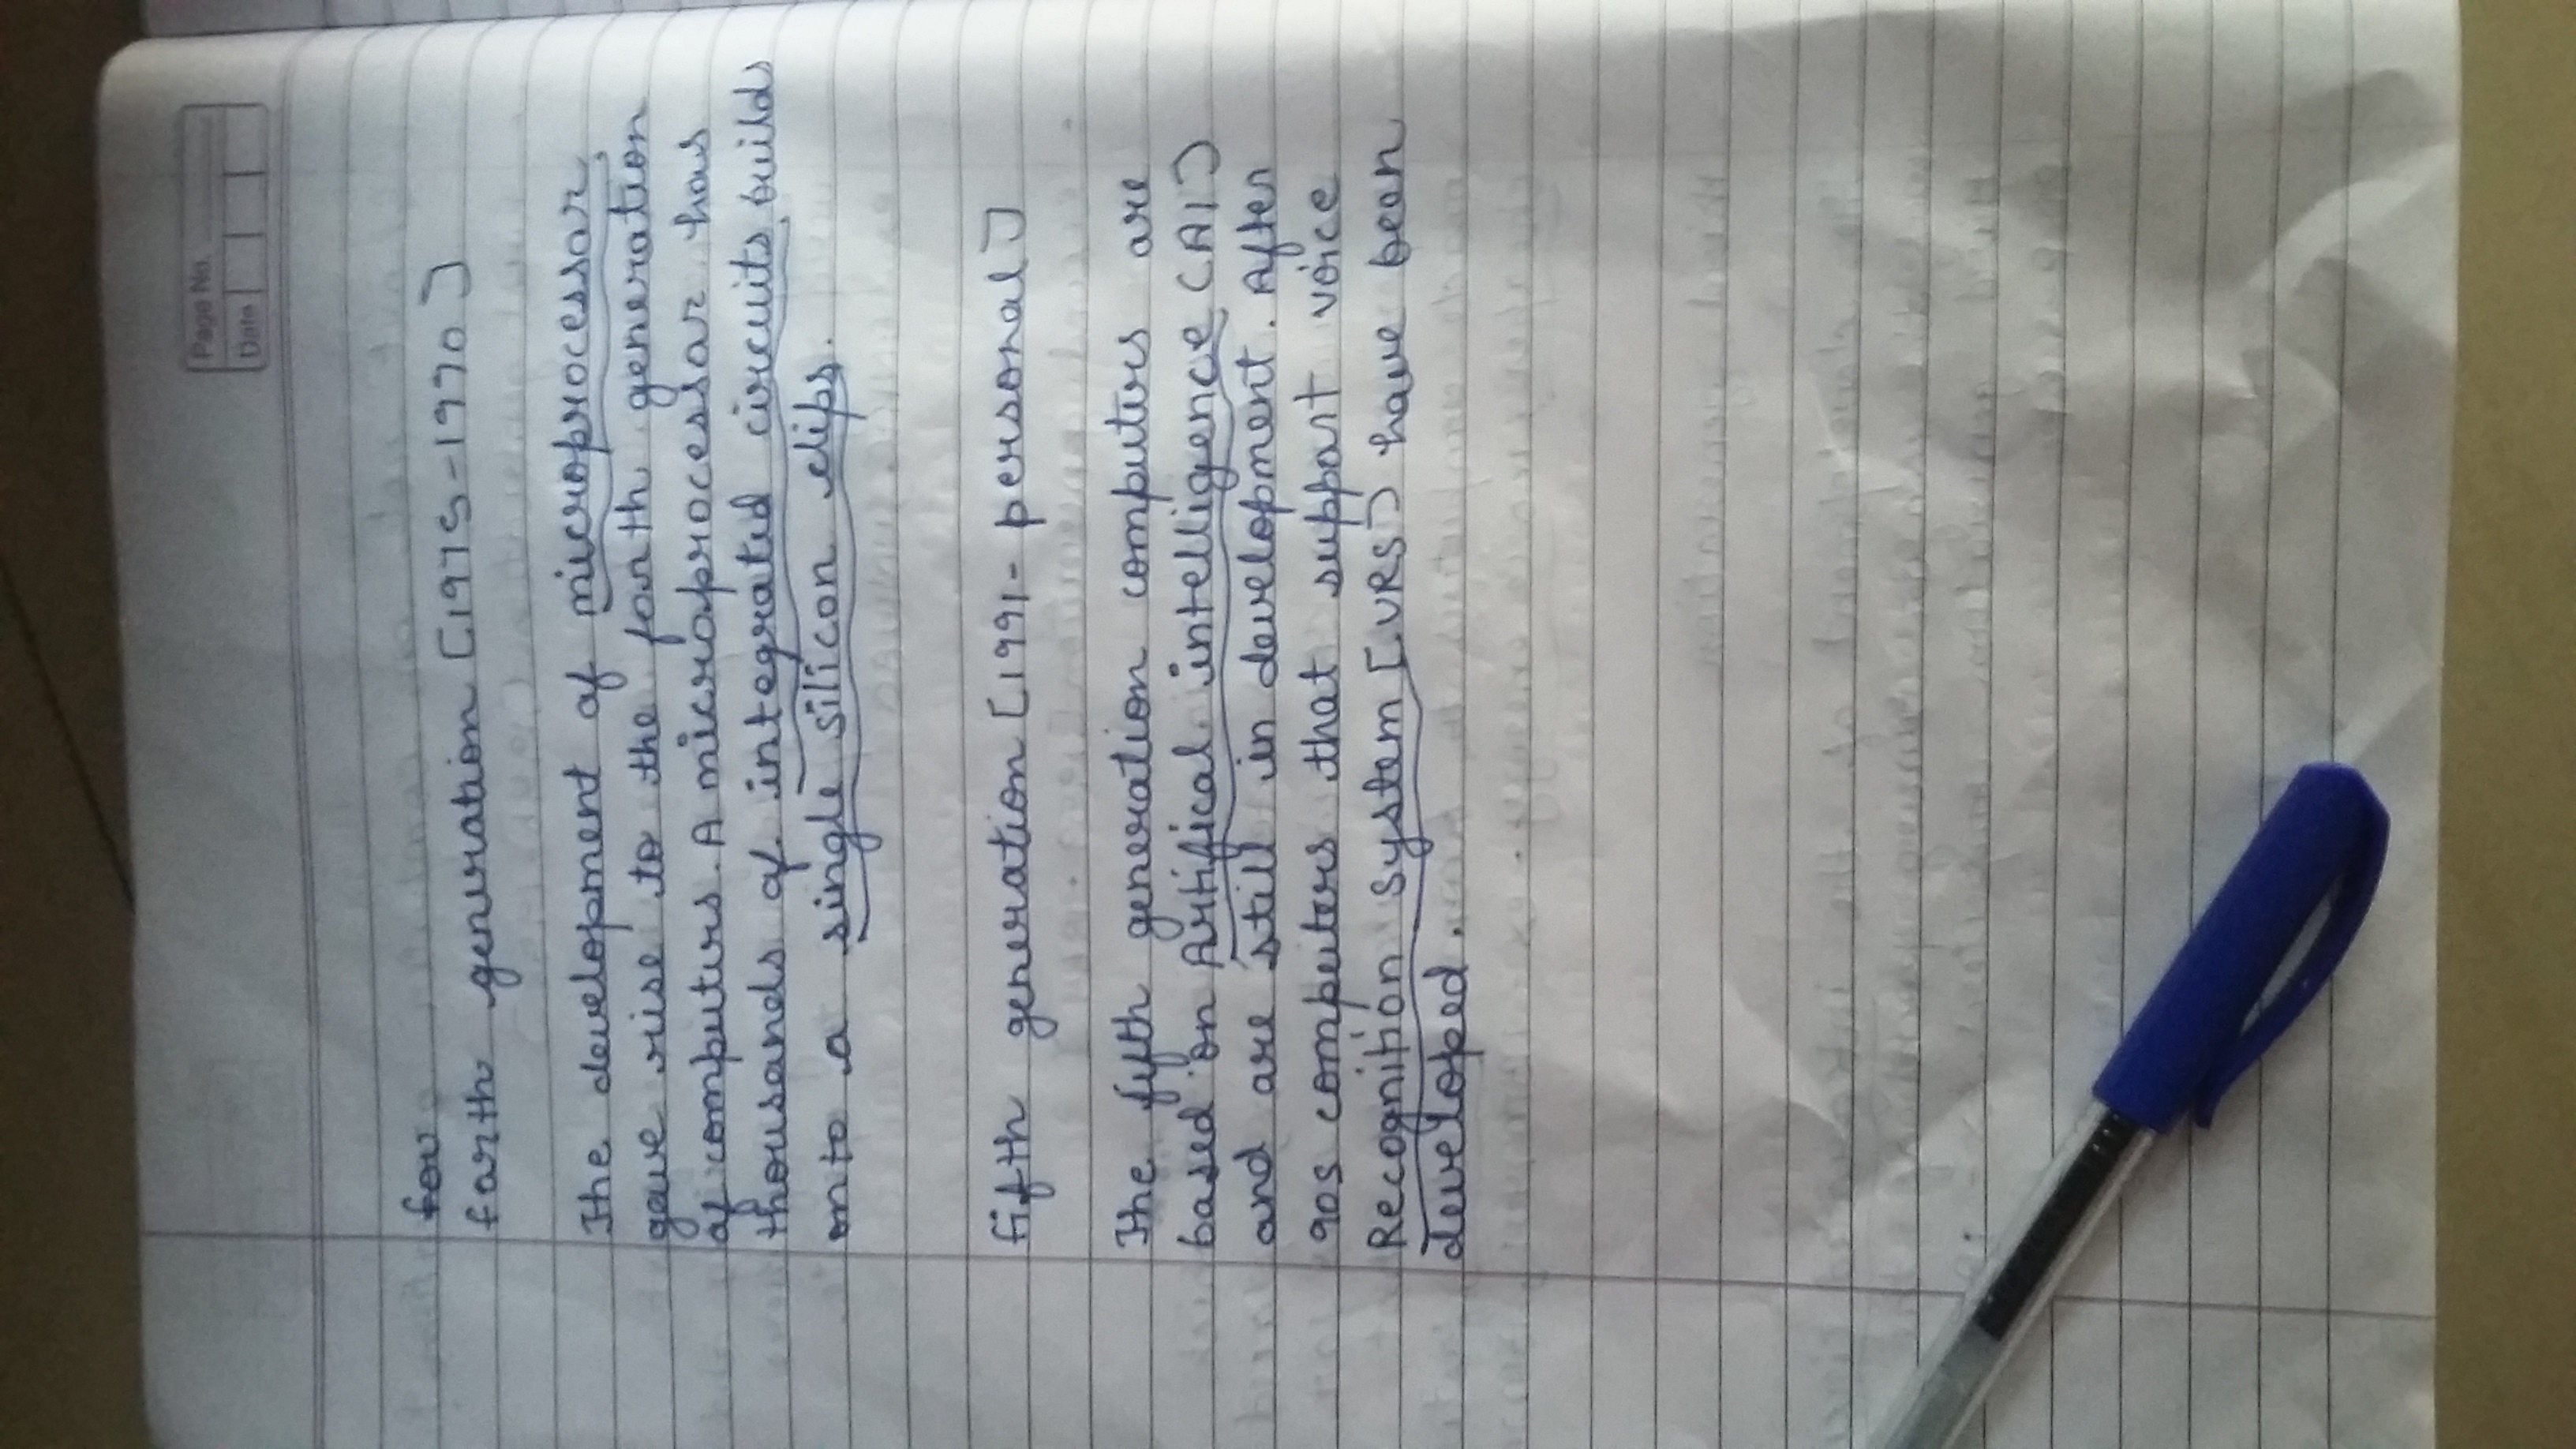 Page No.
Date
fou
farth generation [1975-1990]
The development of microprocessar,
gave rise to the forth generation
of computers. A microprocessar has
thousands of integrated circuits, builds
onto a single silicon clips.
fifth generation [1991- personal]
The fifth generation computers are
based on Artifical intelligence (AI)
and are still in development. After
90s computers that support voice
Recognition system [VRS] have been
developed.